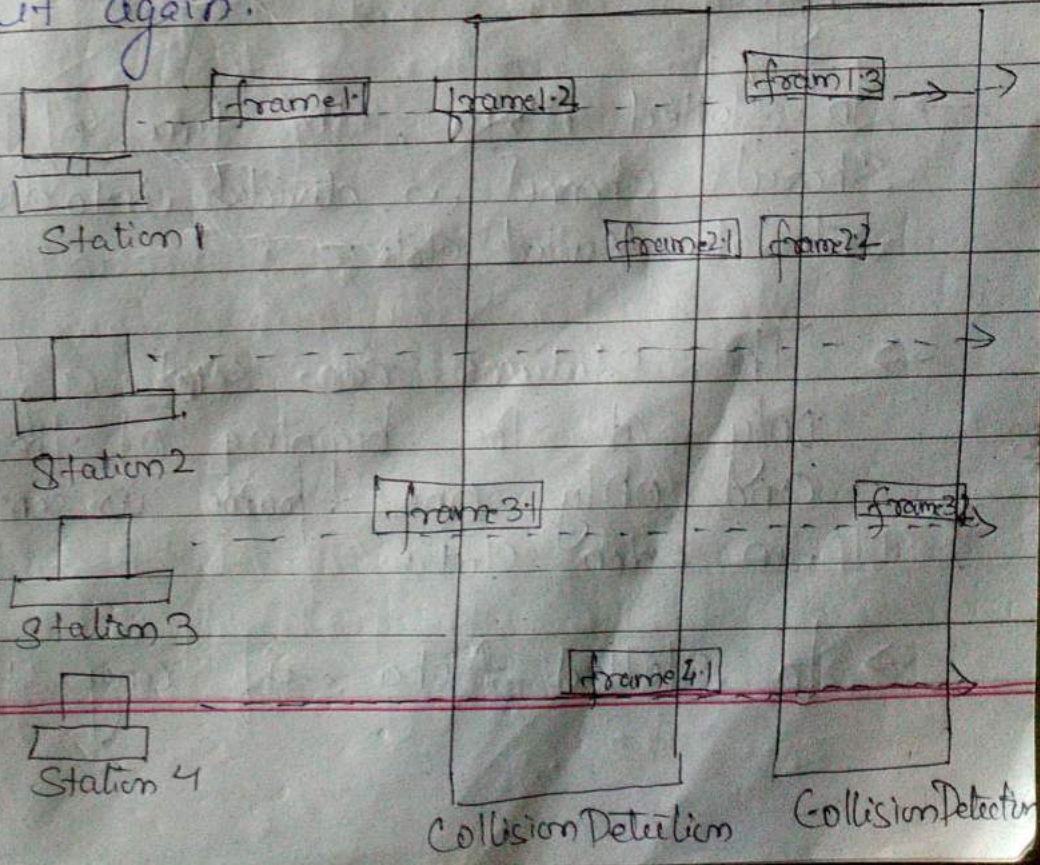 it again.
frame1.1 frame1.2 fram1.3
Station 1
frame2.1 frame2.2
Station 2
frame3.1 frame3.2
Station 3
frame4.1
Station 4
Collision Detection Collision Detection